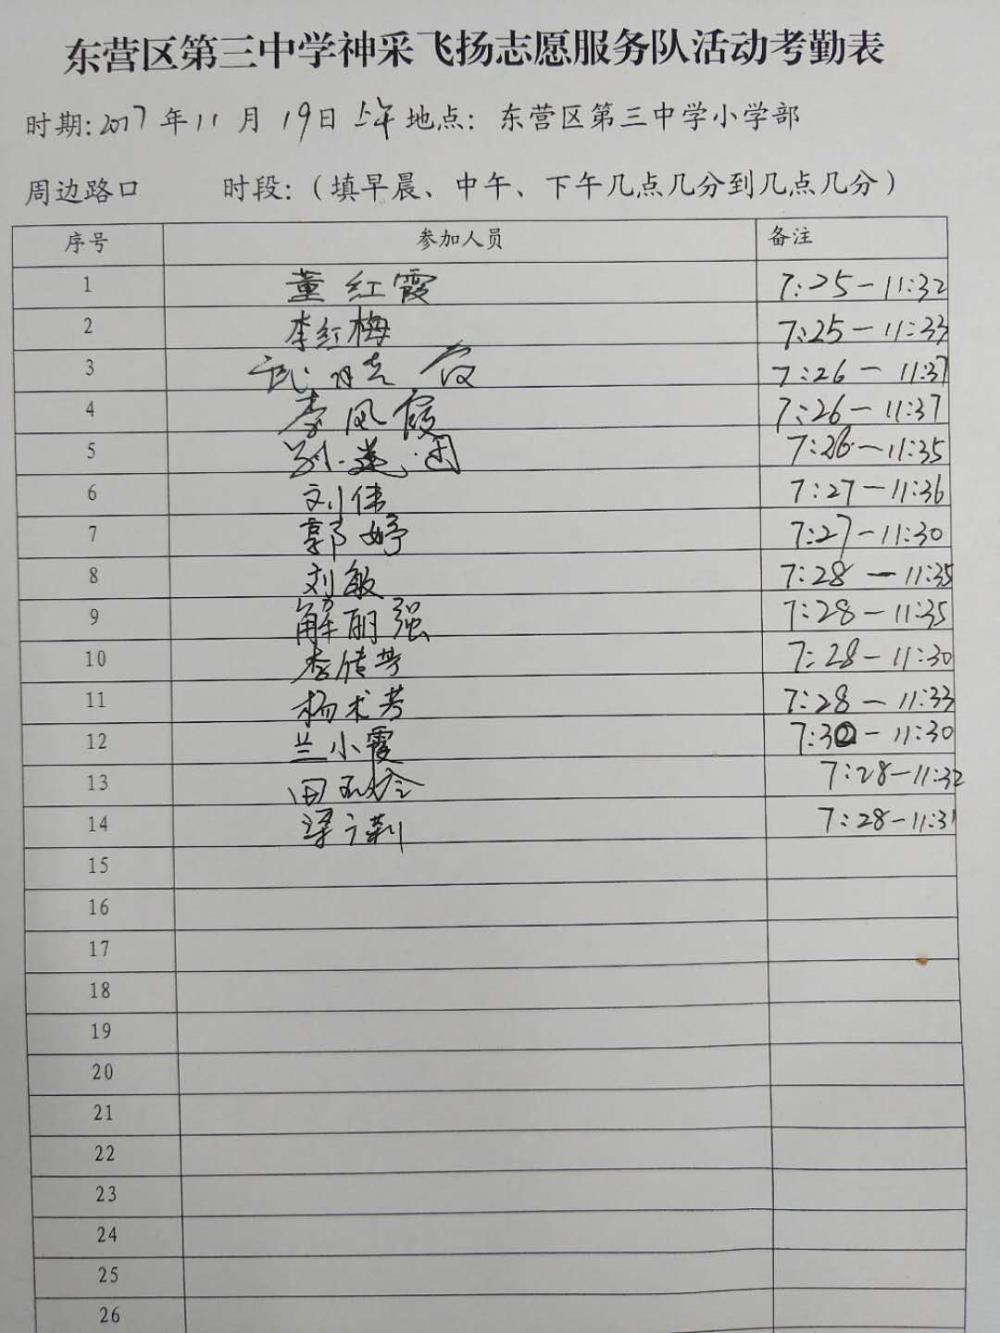 东营区第三中学神采飞扬志愿服务队活动考勤表
时期:2017年11月19日上午地点：东营区第三中学小学部
周边路口 时段：（填早晨、中午、下午几点几分到几点几分）
序号 参加人员 备注
1 董红霞 7:25-11:32
2 李红梅 7:25-11:33
3 武 霞 7:26-11:37
4 李凤霞 7:26-11:37
5 7:26-11:35
6 刘伟 7:27-11:36
7 郭婷 7:27-11:30
8 刘敏 7:28-11:35
9 解丽强 7:28-11:35
10 李倩芳 7:28-11:30
11 杨术芳 7:28-11:33
12 兰小霞 7:30-11:30
13 田 7:28-11:32
14 梁 7:28-11:31
15
16
17
18
19
20
21
22
23
24
25
26